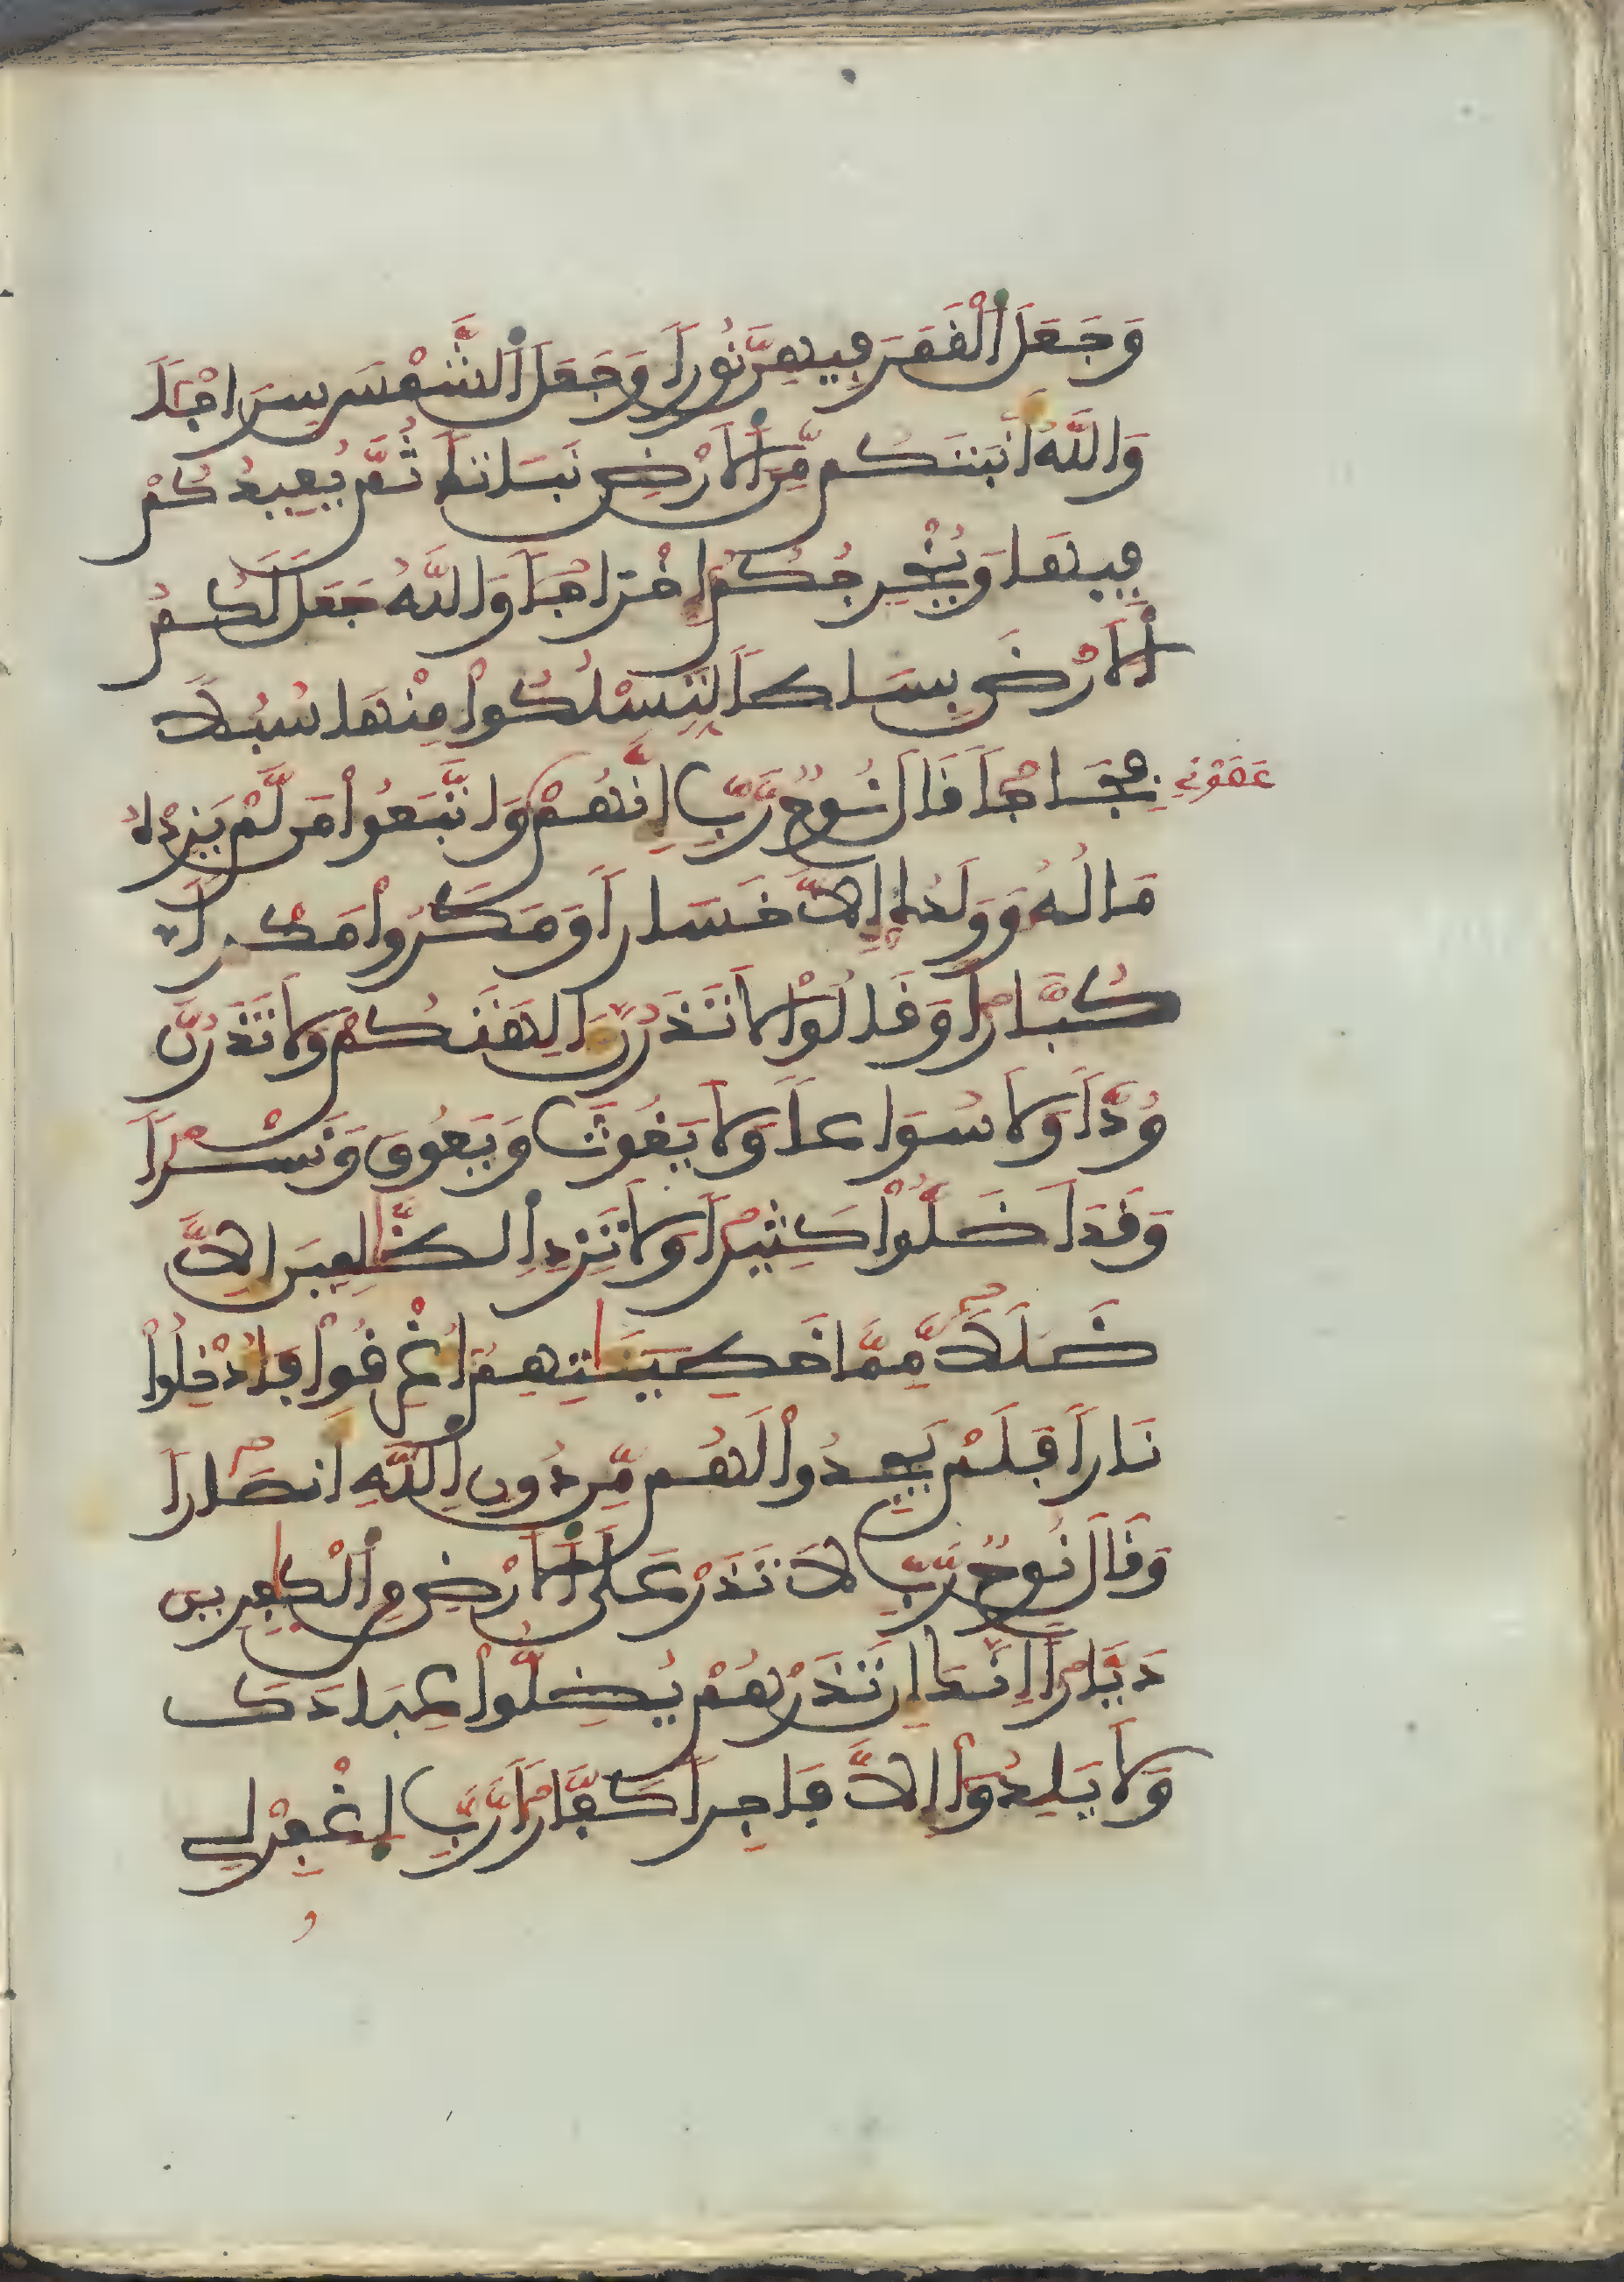 وَجَعَلَ اَ۬لْقَمَرَ فِيهِنَّ نُوراٗ وَجَعَلَ اَ۬لشَّمْسَ سِرَاجاٗ
وَاللَّهُ أَنۢبَتَكُم مِّنَ اَ۬لَارْضِ نَبَاتاٗ ثُمَّ يُعِيدُكُمْ
فِيهَا وَيُخْرِجُكُمُ إِخْرَاجاٗ وَاللَّهُ جَعَلَ لَكُمُ
اُ۬لَارْضَ بِسَاطاٗ لِّتَسْلُكُواْ مِنْهَا سُبُلاٗ
فِجَاجاٗ قَالَ نُوحٌ رَّبِّ إِنَّهُمْ عَصَوْنِي وَاتَّبَعُواْ مَن لَّمْ يَزِدْهُ
مَالُهُ وَوَلَدُهُ إِلَّا خَسَاراٗ وَمَكَرُواْ مَكْراٗ
كُبَّاراٗ وَقَالُواْ لَا تَذَرُنَّ ءَالِهَتَكُمْ وَلَا تَذَرُنَّ
وُدّاٗ وَلَا سُوَاعاٗ وَلَا يَغُوثَ وَيَعُوقَ وَنَسْراٗ
وَقَدَ اَضَلُّواْ كَثِيراٗ وَلَا تَزِدِ اِ۬لظَّٰلِمِينَ إِلَّا
ضَلَٰلاٗ مِّمَّا خَطِيٓـَٰٔتِهِمُ أُغْرِقُواْ فَأُدْخِلُواْ
نَاراٗ فَلَمْ يَجِدُواْ لَهُم مِّن دُونِ اِ۬للَّهِ أَنصَاراٗ
وَقَالَ نُوحٌ رَّبِّ لَا تَذَرْ عَلَى اَ۬لَارْضِ مِنَ اَ۬لْكٰفِرِينَ
دَيَّاراٗ اِنَّكَ إِن تَذَرْهُمْ يُضِلُّواْ عِبَادَكَ
وَلَا يَلِدُواْ إِلَّا فَاجِراٗ كَفَّاراٗ رَّبِّ اِ۪غْفِرْ لِے